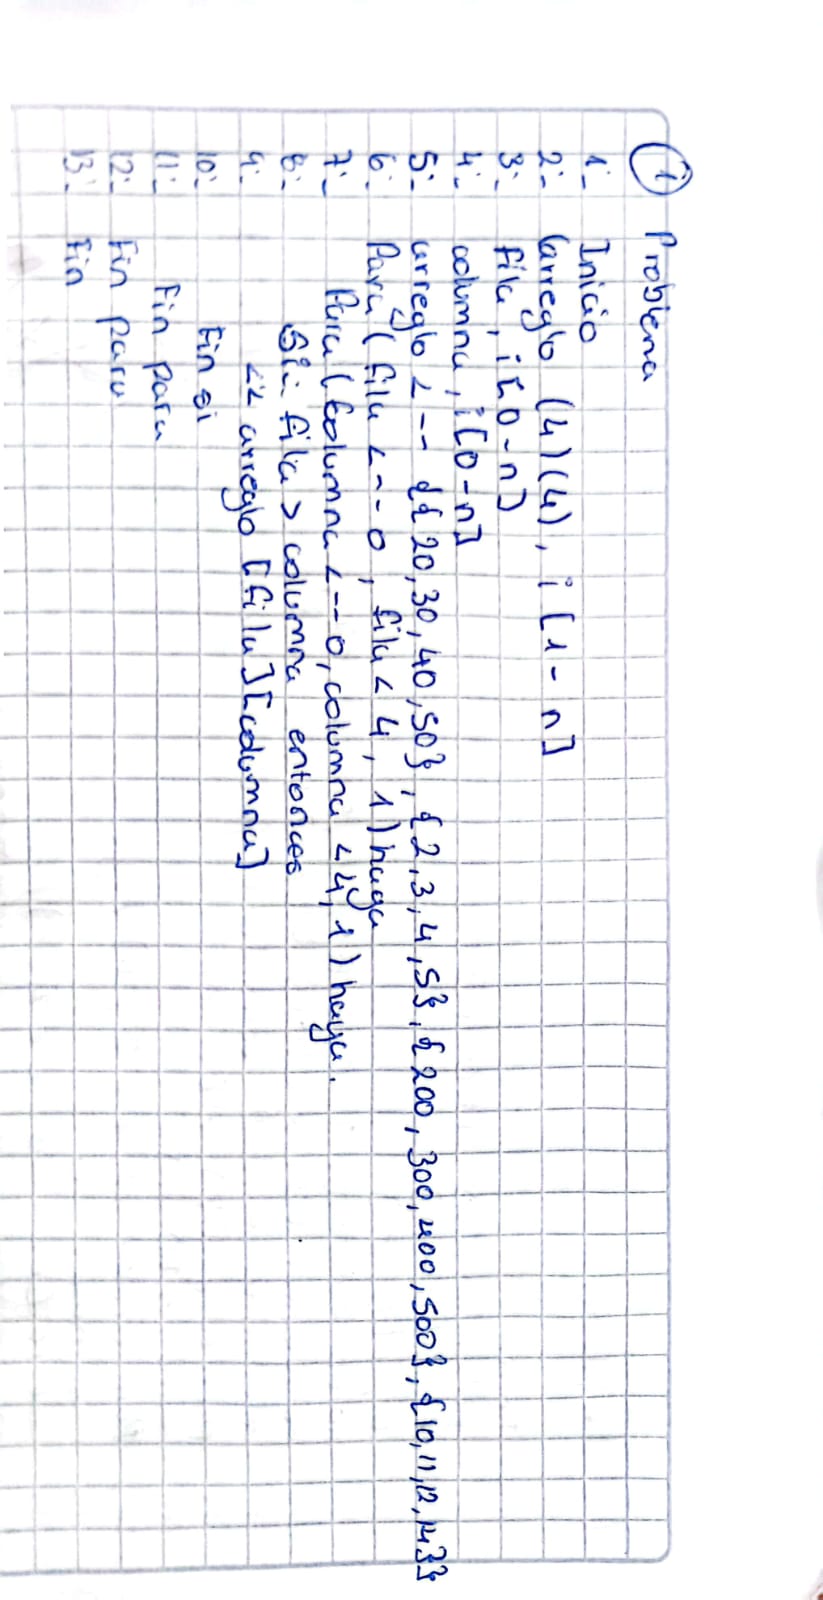 ① Problema
1- Inicio
2- arreglo (4)(4), i [1- n]
3- fila, i[0-n]
4- columna, i[0-n]
5- arreglo <-- {{20,30,40,50}, {2,3,4,5}, {200, 300,400,500}, {10,11,12,14}}
6- Para (fila <-- 0, fila < 4, 1) haga
7- Para (Columna <-- 0, columna < 4, 1) haga.
8- Si- fila > columna entonces
9- << arreglo [fila][columna]
10- Fin si
11- Fin para
12- Fin para
13- Fin